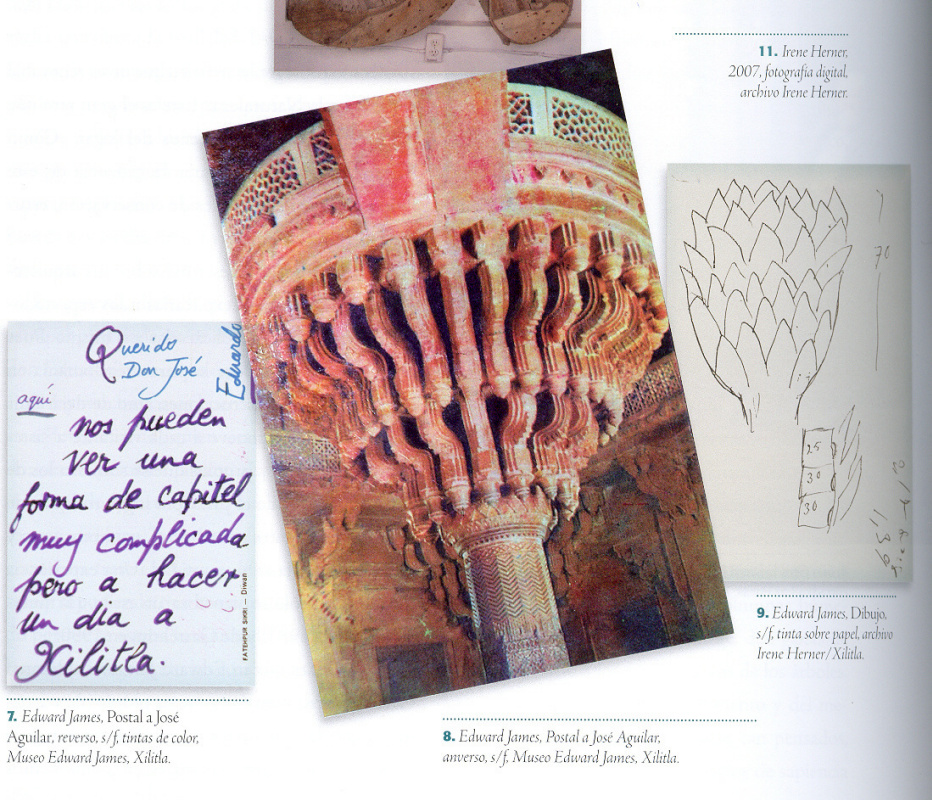 11. Irene Herner,
2007, fotografía digital,
archivo Irene Herner.
Querido
Don José
Eduardo
aquí
nos pueden
ver una
forma de capitel
muy complicada
pero a hacer
un dia a
Xilitla.
FATEHPUR SIKRI — Diwan
70
25
30
30
1,39
7. Edward James, Postal a José
Aguilar, reverso, s/f, tintas de color,
Museo Edward James, Xilitla.
8. Edward James, Postal a José Aguilar,
anverso, s/f, Museo Edward James, Xilitla.
9. Edward James, Dibujo,
s/f, tinta sobre papel, archivo
Irene Herner/Xilitla.